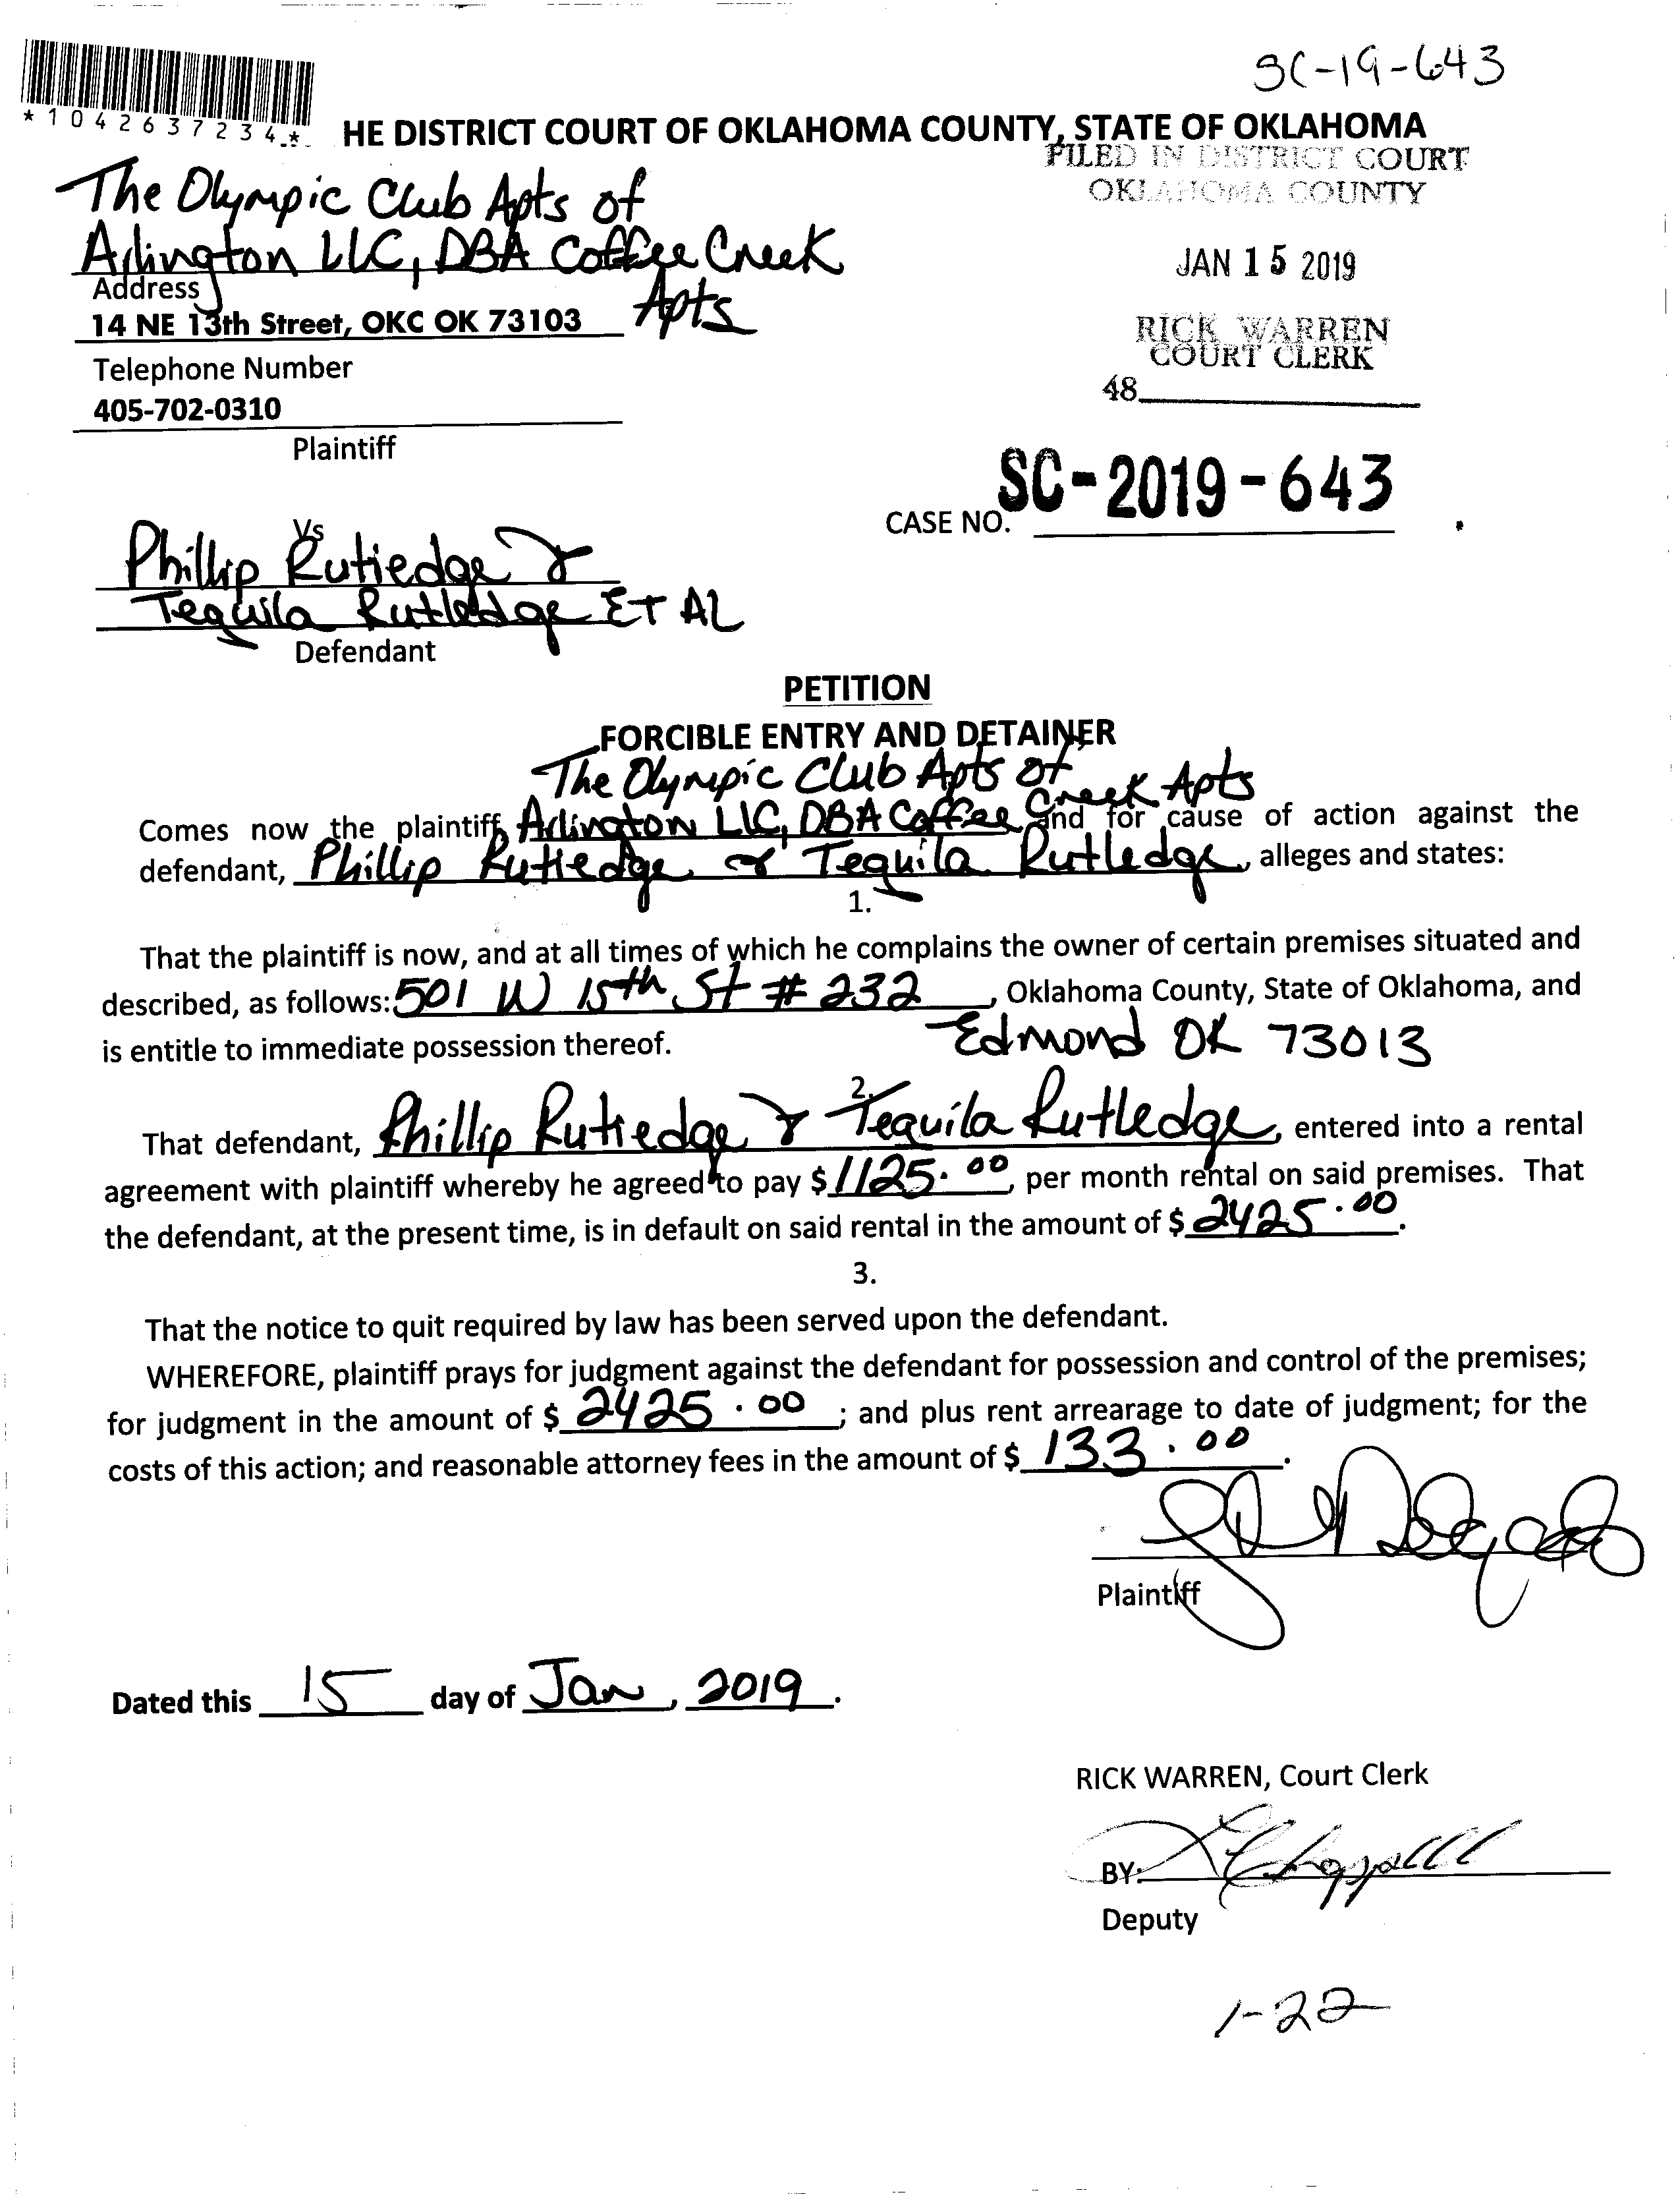 SC-19-643
*1042637234*
HE DISTRICT COURT OF OKLAHOMA COUNTY, STATE OF OKLAHOMA
FILED IN DISTRICT COURT
OKLAHOMA COUNTY
The Olympic Club Apts of
Arlington LLC, DBA Coffee Creek
Apts
JAN 15 2019
Address
14 NE 13th Street, OKC OK 73103
RICK WARREN
COURT CLERK
Telephone Number
48
405-702-0310
Plaintiff
SC-2019-643
CASE NO.
Vs
Phillip Rutledge &
Tequila Rutledge ET AL
Defendant
PETITION
FORCIBLE ENTRY AND DETAINER
The Olympic Club Apts of
Comes now the plaintiff, Arlington LLC, DBA Coffee Creek Apts and for cause of action against the
defendant, Phillip Rutledge & Tequila Rutledge, alleges and states:
1.
That the plaintiff is now, and at all times of which he complains the owner of certain premises situated and
described, as follows: 501 W 15th St # 232, Oklahoma County, State of Oklahoma, and
is entitle to immediate possession thereof. Edmond OK 73013
2.
That defendant, Phillip Rutledge & Tequila Rutledge, entered into a rental
agreement with plaintiff whereby he agreed to pay $1125.00, per month rental on said premises. That
the defendant, at the present time, is in default on said rental in the amount of $2425.00.
3.
That the notice to quit required by law has been served upon the defendant.
WHEREFORE, plaintiff prays for judgment against the defendant for possession and control of the premises;
for judgment in the amount of $2425.00; and plus rent arrearage to date of judgment; for the
costs of this action; and reasonable attorney fees in the amount of $133.00.
Plaintiff
Dated this 15 day of Jan, 2019.
RICK WARREN, Court Clerk
BY:
Deputy
1-22